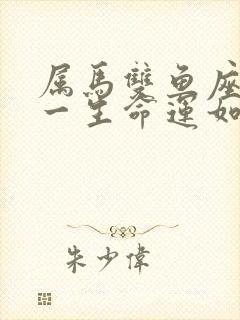 属馬雙魚座
一生命運如
朱少偉